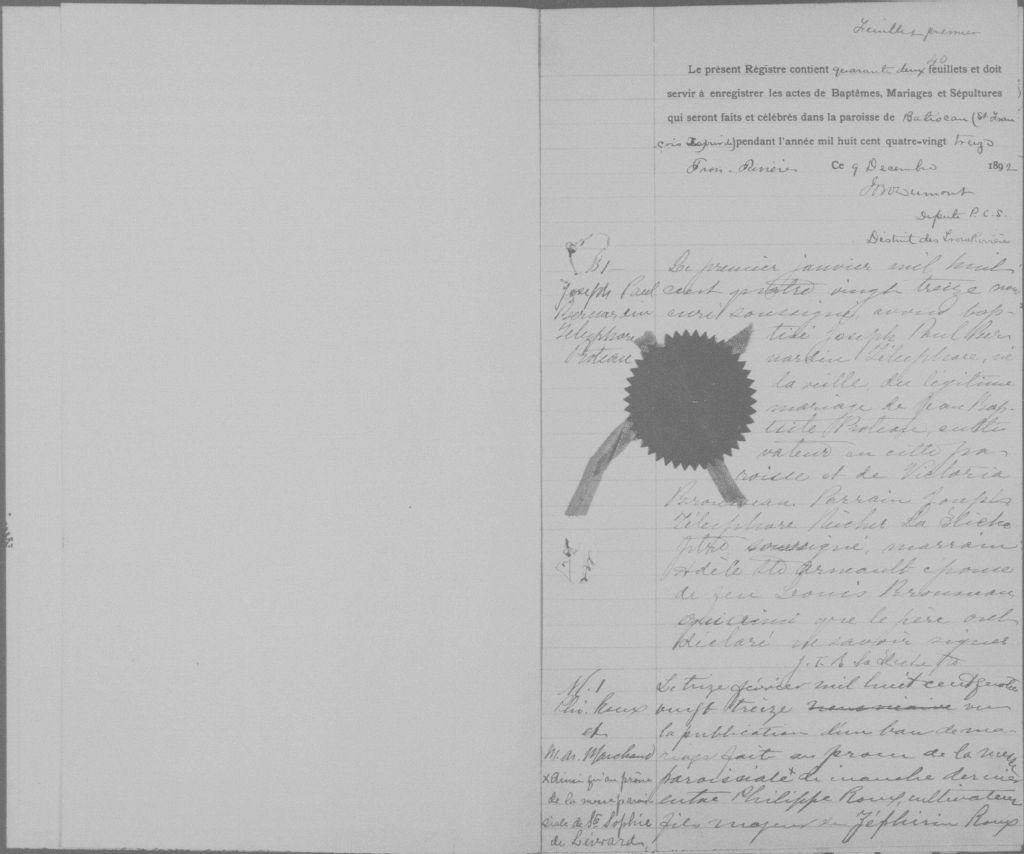 Feuillet premier
40
Le présent Régistre contient quarante deux feuillets et doit
servir à enregistrer les actes de Baptêmes, Mariages et Sépultures
qui seront faits et célébrés dans la paroisse de Batiscan (St Fran
çois Xavier) pendant l'année mil huit cent quatre-vingt treize
Trois-Rivières Ce 9 Decembre 1892
Dumont
Deputé P.C.S.
District des Trois Rivières
B1
Joseph Paul
Bernardin
Télesphore
Proteau
Le premier janvier mil huit
cent quatre vingt treize nous
curé soussigné, avons bap-
tisé Joseph Paul Ber
nardin Télesphore, né
la veille, du légitime
mariage de Jean Bap-
tiste Proteau, culti
vateur en cette pa-
roisse et de Victoria
Brousseau. Parrain Joseph
Télesphore La Flèche
Ptre soussigné, marraine
Adèle St Arneault épouse
de feu Louis Brousseau
que le père ont
déclaré ne savoir signer
La Flèche
M. 1
Phi. Roux
et
M. Ar. Marchand
x Ainsi qu'au prône
de la messe parois
siale de Ste Sophie
de Lévrard
Le treize février mil huit cent quatre
vingt treize vu
la publication d'un ban de ma-
riage fait au prone de la messe
paroissiale x dimanche dernier
entre Philippe Roux, cultivateur
fils majeur de Zéphirin Roux